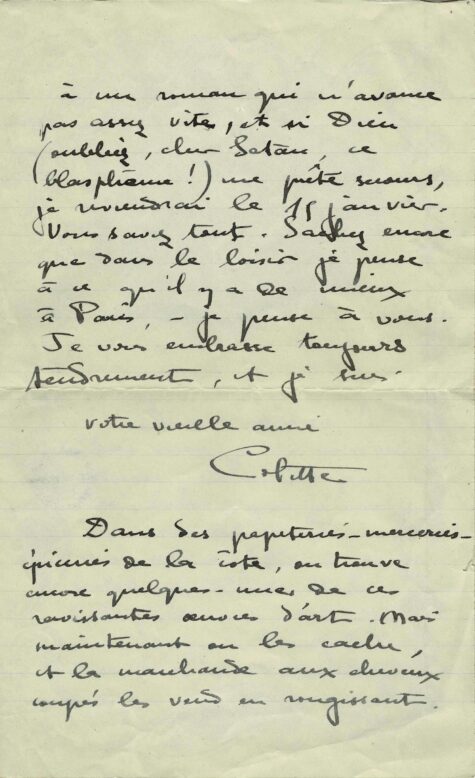 à un roman qui n'avance
pas assez vite, et si Dieu
(oubliez, cher Satan, ce
blasphème !) me prête secours,
je reviendrai le 15 janvier.
Vous savez tout. Sachez encore
que dans le loisir je pense
à ce qu'il y a de mieux
à Paris, – je pense à vous.
Je vous embrasse toujours
tendrement, et je suis
votre vieille amie
Colette
Dans des papeteries-merceries-
épiceries de la côte, on trouve
encore quelques-unes de ces
ravissantes œuvres d'art. Mais
maintenant on les cache,
et la marchande aux cheveux
coupés les vend en rougissant.